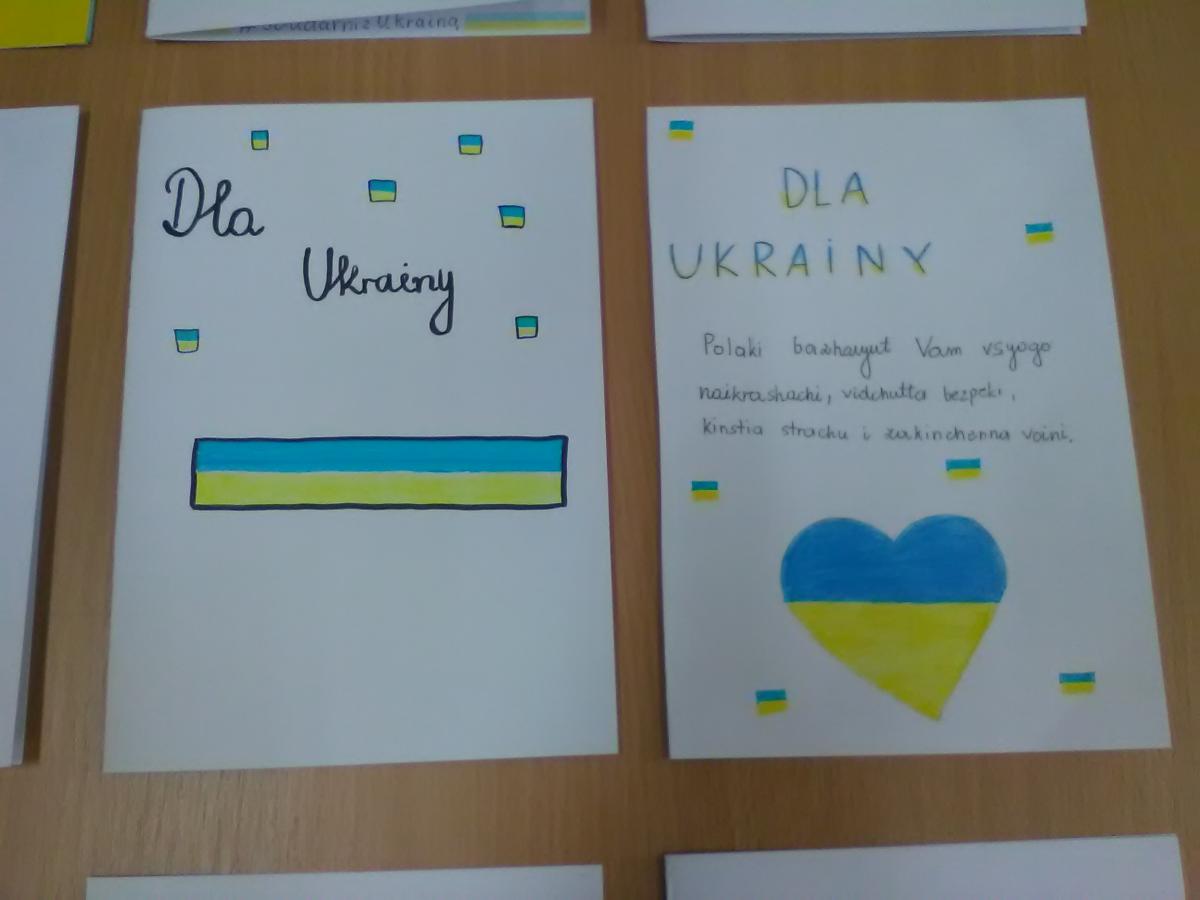 #SolidarnizUkrainą
Dla
Ukrainy
DLA
UKRAINY
Polaki bazhayut Vam vsyogo
naikrashachi, vidchutta bezpeki,
kinstia strachu i zakinchenna voini.